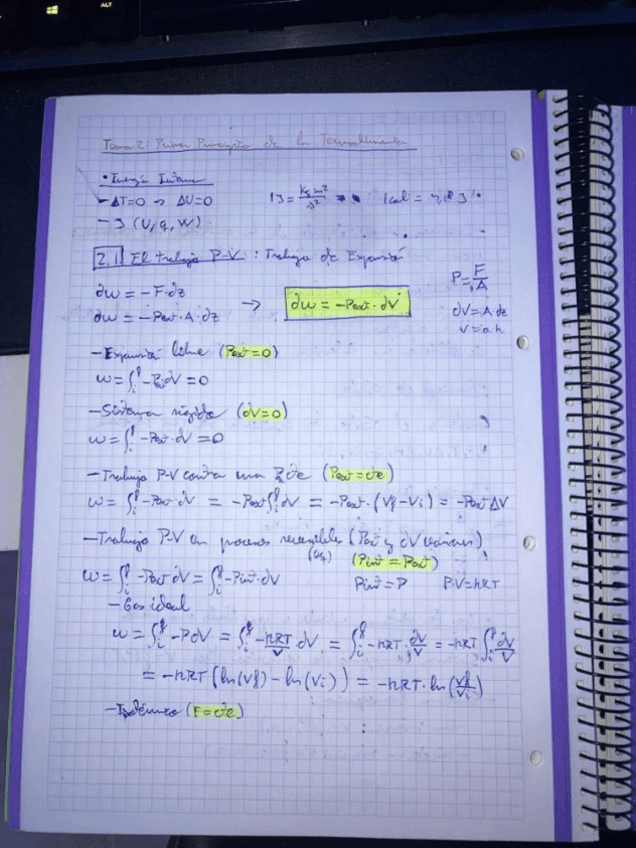 ALT
Tema 2: Primer Principio de la Termodinámica
• Energía Interna
- ΔT=0 → ΔU=0    1J = kg m²/s²    1cal = 4,18 J
- J (U, q, W)
2.1 El trabajo P-V : Trabajo de Expansión
P = F/A
∂w = -F·dz
∂w = -Pext·A·dz → ∂w = -Pext·dV
dV = A dz
V = a·h
- Expansión libre (Pext=0)
w = ∫ᵢᶠ -Pext dV = 0
- Sistema rígido (dV=0)
w = ∫ᵢᶠ -Pext·dV = 0
- Trabajo P-V contra una P cte (Pext = cte)
w = ∫ᵢᶠ -Pext·dV = -Pext ∫ᵢᶠ dV = -Pext·(Vf-Vi) = -Pext ΔV
- Trabajo P-V en procesos reversibles (Pext y dV varían)
(eq) (Pint = Pext)
w = ∫ᵢᶠ -Pext dV = ∫ᵢᶠ -Pint·dV    Pint = P    P·V = nRT
- Gas ideal
w = ∫ᵢᶠ -PdV = ∫ᵢᶠ -nRT/V dV = ∫ᵢᶠ -nRT·dV/V = -nRT ∫ᵢᶠ dV/V
= -nRT (ln(Vf) - ln(Vi)) = -nRT·ln(Vf/Vi)
- Isotérmico (T=cte)